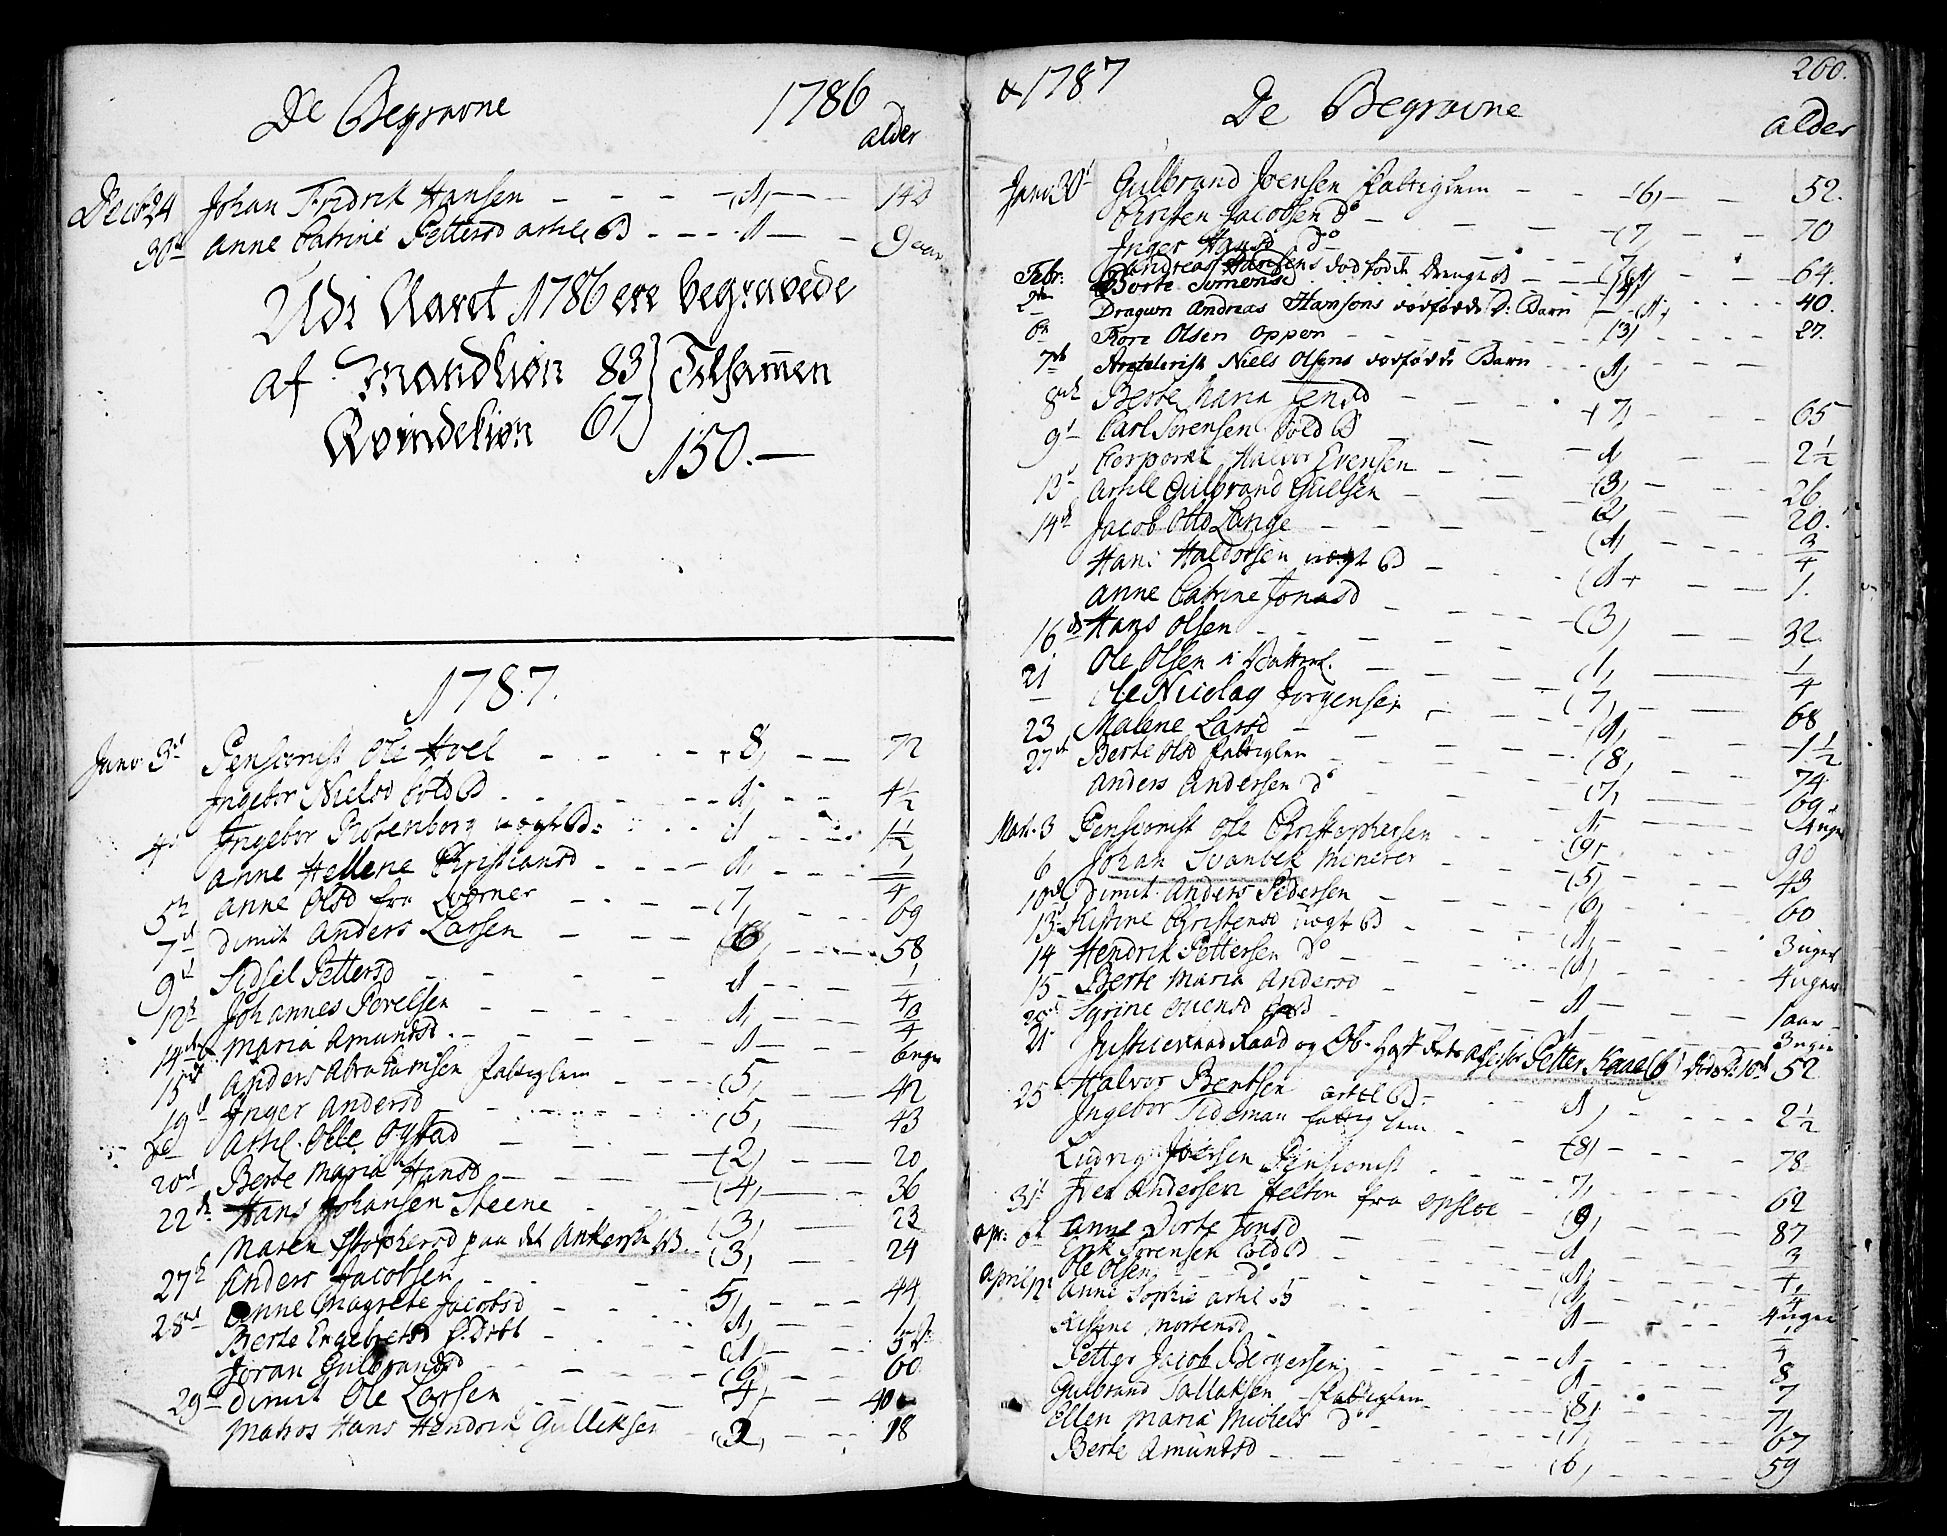 De Begravne 1786
alder
Decbr 24 Johan Fridrik Hansen 1 14 d
30te Anne Catrine Pettersd artil: B 1 9 aar
Udi Aaret 1786 ere begravede
af Mandkiön 83 Tilsammen
Qvindekiön 67
150.
1787.
Janv: 3d Pensionist Ole Hoel 8 72
Ingebor Nielsd Cold B 1 4½
4d Ingebor Rosenborg vogt B: 1 1½
Anne Hellene Christiansd 1 ¼
5te Anne Olsd fra Qværner 7 69
7d dimit Anders Larsen 6 58
9d Sidsel Pettersd 1 ¼
12te Johannes Povelsen 1 ¾
14de Maria Amundsd. 1 6 uger
15d Anders Abrahamsen fattiglem 5 42
19d Inger Andersd 5 43
do Artil. Olle Ogstad 2 20
20d Berte Maria Hansd 4 36
22d Hans Johansen Steene 3 23
Maren Stophersd paa det Ankerske W. 3 24
27d Anders Jacobsen 5 44
28d Anne Magrete Jacobsd 1
Berte Engebretsd 1
Joran Gulbrandsd 6 60
29d dimit Ole Larsen 4 40
Matros Hans Hendrik Gulleksen 2 18
1787 De Begravne 260.
alder
Janv 30d Gulbrand Joensen fattiglem 6 52.
Christen Jacobsen do 7 70
Inger Hansd do 7 64.
Febr: Andreas Hansens dödfödde Drenge B
Dorte Simensd 40.
2den Dragun Andreas Hansens dödfödde D: Barn 1
6te Tore Olsen Oppen 3 27.
7de Artilerist Niels Olsens dödfödde Barn 1
8de Berte Maria Jensd 7 65
9d Carl Sörensen Cold B 1 2½
Corporal Halvor Evensen 3 26
13d Artill Gulbrand Gulsen 2 20.
14de Jacob Otto Lange 1 ¾
Hans Haldorsen vogt B 1 1.
Anne Catrine Jonasd
16de Hans Olsen 3 32.
21 Ole Olsen 1 ¼
Ole Nicolay Jörgensen 7 68
23 Malene Larsd 1 1½
27d Berte Olsd fattiglem 8 74.
Anders Andersen do 7 69
Mart: 3 Pensionist Ole Christophersen 1 4 uger
6 Johan Svanbek Minerer 9 90
10d Dimit. Anders Pedersen 5 43
13d Kistine Christensd vogt B 6 60
14 Hendrik Pettersen do 1 3 uger
15 Berte Maria Andersd 1 4 uger
20d Syrine Evensd 1 1 aar
21 1 3 uger
Justiceraad Raad og Ob- Hof Rets Assessor Petter Kaael 6 döde d: 10d 52
25 Halvor Bentsen artil B. 1 2½
Ingebor Tideman fattiglem 8 78
Ludvig Iversen Pensionist 7 62
31t Iver Andersen Helton fra Opsloe 9 87
Apr: 6te Anne Dorte Jonsd 1 ¾
Erik Sörensen Cold B 1 ¼
April 12 Ole Olsen do 1
Anne Sophie artil B 1 4 uger
Kistine Mortensd 1 ¼
Petter Jacob Bergersen 1 8
Gulbrand Tallaksen fattiglem 8 71
Ellen Maria Michels do 7 67
Berte Amundsd 6 59